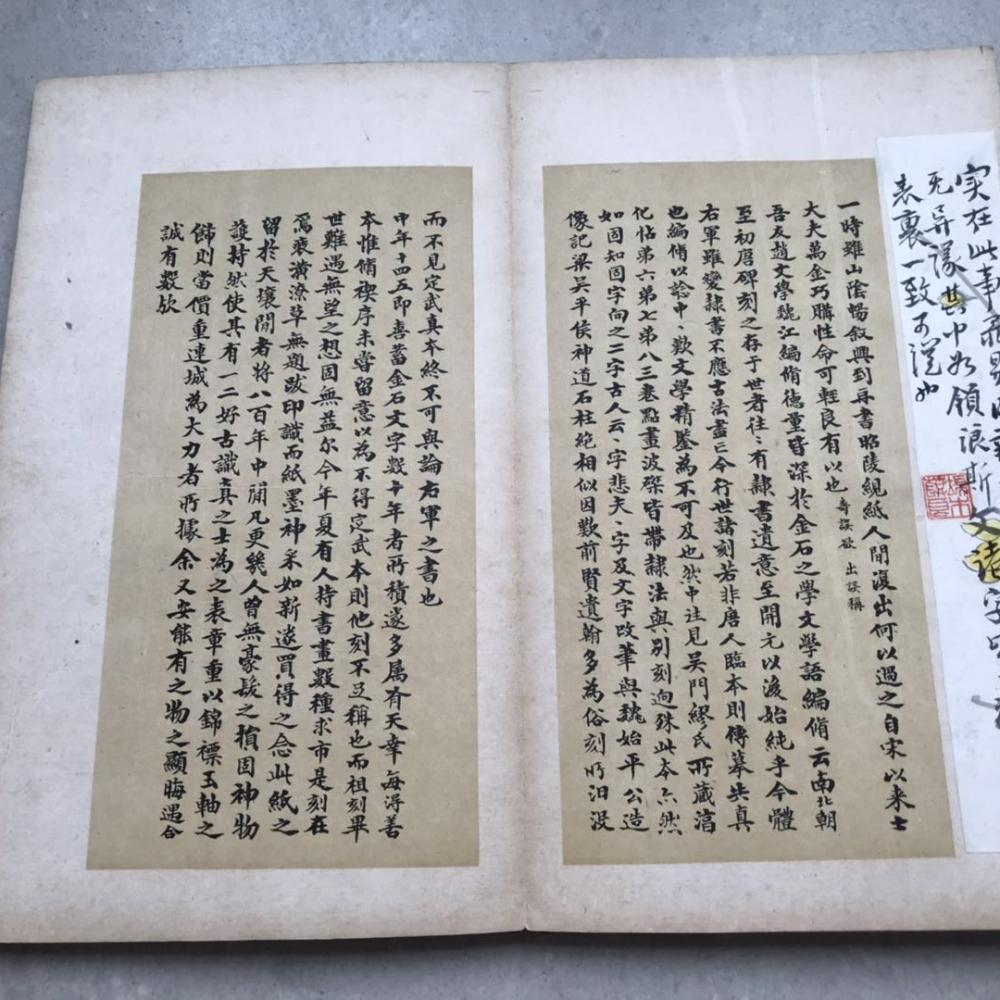 实在此事
无异议其中如领浪斯
表里一致可谓也
一時雖山陰暢敘興到再書昭陵繭紙人間復出何以過之自宋以来士
大夫萬金巧購性命可輕良有以也 奇誤欲 出誤稱
吾友趙文學魏江編脩德量皆深於金石之學文學語編脩云南北朝
至初唐碑刻之存于世者往:有隷書遺意至開元以後始純乎今體
右軍雖變隷書不應古法盡亡今行世諸刻若非唐人臨本則傳摹失真
也編脩以諗中、歎文學精鑒為不可及也然中往見吴門繆氏所藏淳
化帖第六第七第八三卷點畫波磔皆帶隷法與別刻迥殊此本亦然
如固知固字向之二字古人云、字悲夫、字及文字改筆與魏始平公造
像記梁吴平侯神道石柱絶相似因歎前賢遺翰多為俗刻所汩没
而不見定武真本終不可與論右軍之書也
中年十四五即喜蓄金石文字數十年者所積遂多属有天幸每得善
本惟脩禊序未嘗留意以為不得定武本則他刻不足稱也而祖刻畢
世難遇無望之想固無益尔今年夏有人持書畫數種求市是刻在
焉裝潢潦草無題跋印識而紙墨神采如新遂買得之念此紙之
留於天壤間者将八百年中間凡更幾人曾無豪髮之損固神物
護持然使其有一二好古識真之士為之表章重以錦褾玉軸之
餙則當價重連城為大力者所據余又安能有之物之顯晦遇合
誠有數㰦